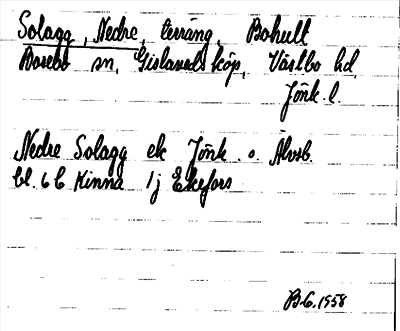 Solagg, Nedre, terräng, Bohult
Bosebo sn, Gislaveds köp, Västbo hd,
Jönk. l.
Nedre Solagg ek Jönk. o. Älvsb.
bl. 6 C Kinna 1j Ekefors
B.G. 1958